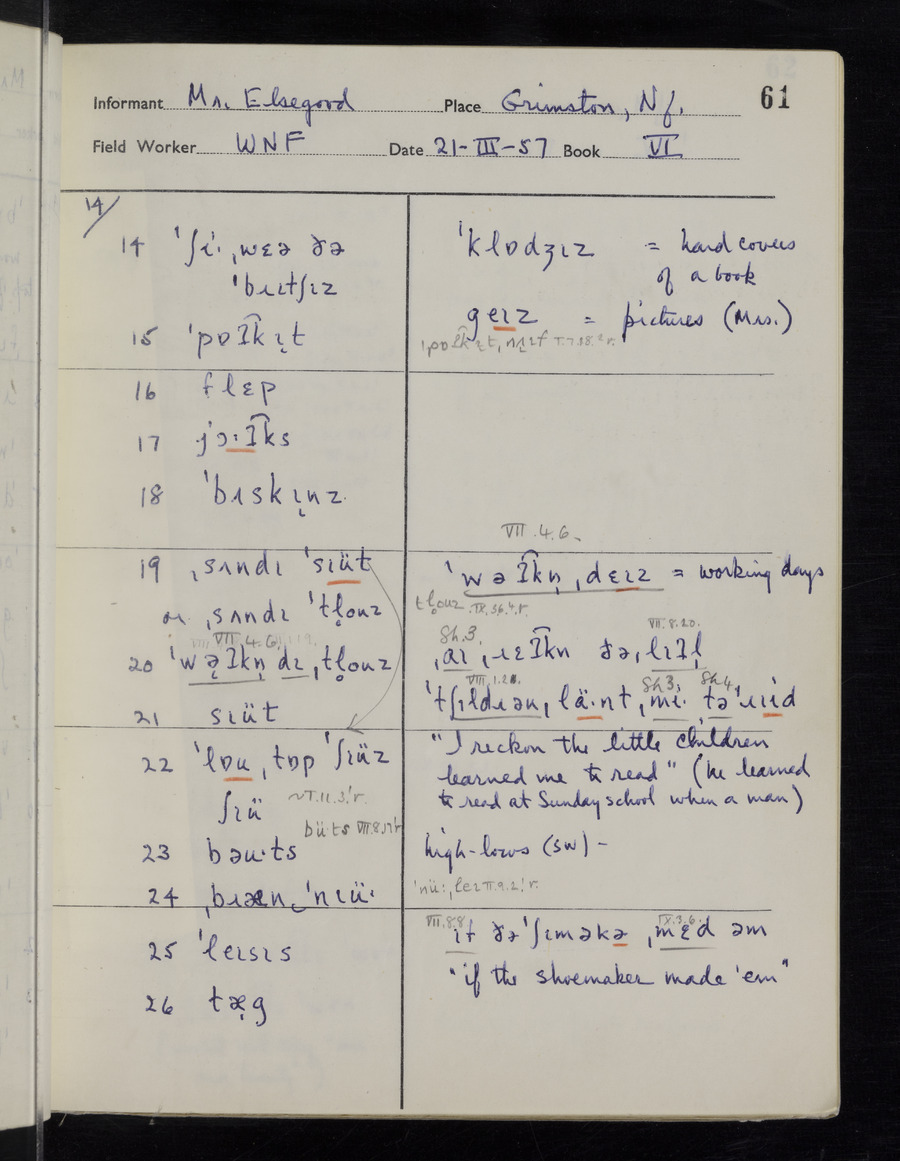 61
Informant Mr. Elsegood Place Grimston, Nf.
Field Worker WNF Date 21-III-57 Book VI
14/
14 ˈʃɪˑ ˌwɛə ðə
ˈbɹɪtʃɪz
15 ˈpɒʔk̑ɪ̞t
16 flɛp
17 jɔːʔks
18 ˈbɪskɪ̞nz
19 ˌsʌndɪ ˈsɪüt
or ˌsʌndɪ ˈtl̥ouz
VII.4.6
20 ˈwə̞ʔkn̩ dɪ ˌtl̥ouz
21 sɪüt
22 ˈlɒu ˌtɒp ˈʃɪüz
ʃɪü ~T.11.3.'r.
büˑts VII.8.17'r
23 bəuˑts
24 ˌbɹæn ˈnɪüˑ
25 ˈleɪsɪs
26 tæ̞g
ˈklɒdʒɪz = hard covers
of a book
geɪz = pictures (Mrs.)
VII.4.6.
ˈwəʔkn̩ ˌdɛɪz = working days
tl̥ouz IX.36.4.r.
Sh.3. VII.8.20.
ˌaɪ ˌɹɛʔkn ðə ˌlɪʔl̩
VIII.1.2. Sh3, Sh4
ˈtʃɪldɹən ˌläˑnt ˌmɪˑ tə ˈɹɪid
"I reckon the little children
learned me to read" (he learned
to read at Sunday school when a man)
high-lows (sw) –
ˈnüː ˌleɪ II.9.2.'r.
VII.8.8 IX.3.6.
ɪf ðə ˈʃɪməkə ˌmɛ̞d əm
"if the shoemaker made 'em"